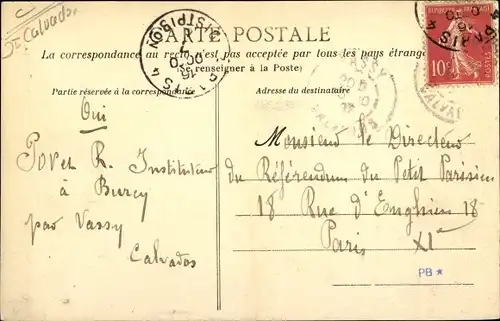 Calvados
CARTE POSTALE
La correspondance au recto n'est pas acceptée par tous les pays étrangers
(Se renseigner à la Poste)
Partie réservée à la correspondance
Adresse du destinataire
Oui
Povet R. Instituteur
à
Burcy
par Vassy
Calvados
Monsieur le Directeur
du Référendum du Petit Parisien
18 Rue d'Enghien 18
Paris XIe
PB*
10c
POSTES